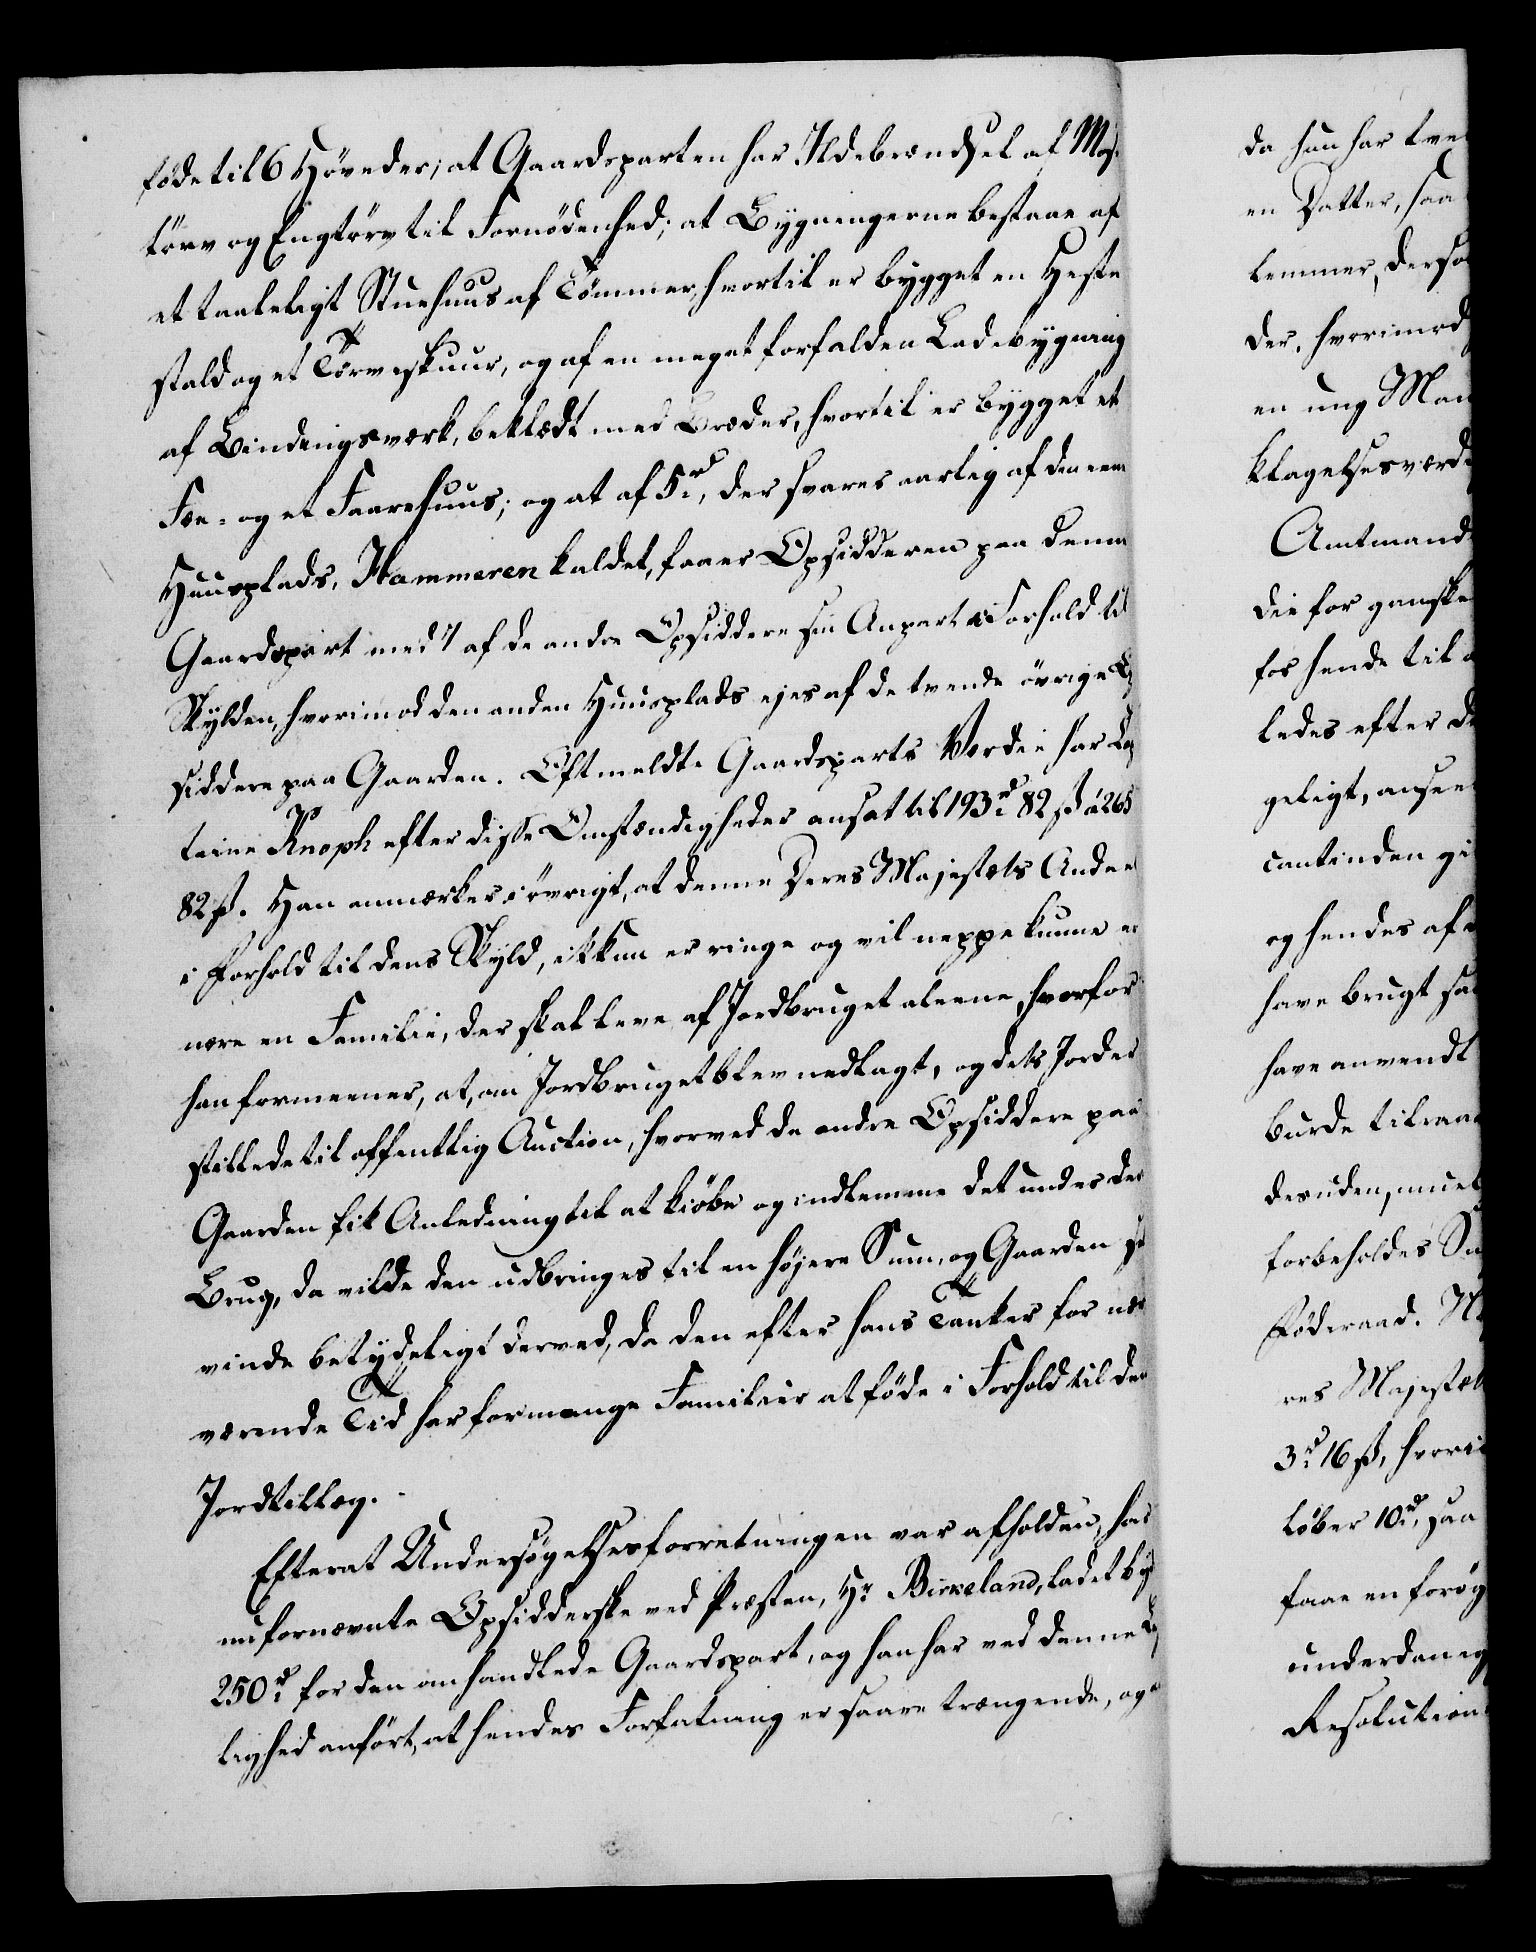 føde til 6 Høveder; at Gaardsparten har Ildebrændsel af Mos-
törv og Engtörv til Fornödenhed; at Bygningerne bestaae af
et taaleligt Stuehuus af Tömmer, hvortil er bygget en Heste
stald og et Törveskuur, og af en meget forfalden Ladebygning
af Bindingsværk, beklædt med Bræder, hvortil er bygget et
Fæe- og et Faarehuus; og at af 5 rd, der svares aarlig af den eene
Huusplads, Hammeren kaldet, faaer Opsidderen paa denne
Gaardspart med 7 af de andre Opsiddere sin Anpart i Forhold til
Skylden, hvorimod den anden Huusplads ejes af de tvende övrige Op
siddere paa Gaarden. Oftmeldte Gaardsparts Værdie har Cap
taine Knoph efter disse Omstændigheder ansat til 193 rd 82 ß à 265
82 ß. Han anmærker i övrigt, at denne Deres Majestæts Andeel
i Forhold til dens Skyld, ikkun er ringe og vil neppe kunne er
nære en Familie, der skal leve af Jordbruget alene, hvorfor
han formeener, at, om Jordbruget blev nedlagt, og dets Jorder
stillede til offentlig Auction, hvorved de andre Opsiddere paa
Gaarden fik Anledning til at kiöbe og indlemme det under deres
Brug, da vilde den udbringes til en højere Sum, og Gaarden
vinde betydeligt derved, da den efter hans Tanker for nær
værende Tid har for mange Familier at föde i Forhold til den
Jordtillæg.
Efterat Undersøgelsesforretningen var afholden, har
nufornævnte Opsidderske ved Præsten, Hr Birkeland, ladet byde
250 rd for den omhandlede Gaardspart, og han har ved denne
lighed anfört, at hendes Forfatning er saare trængende, og
da hun har tve
en Datter, saa
lemmer, derso
der, hvorimod
en ung Man
klagelsesværd
Amtmand
die for ganske
for hende til
ledes efter d
geligt, ansee
cantinden gi
og hendes af
have brugt sa
have anvendt
burde tilraa
desuden, muel
forbeholdes Su
Föderaad. N
res Majestæt
3 rd 16 ß, hvori
löber 10 rd, saa
faae en forög
underdanig
Resolution